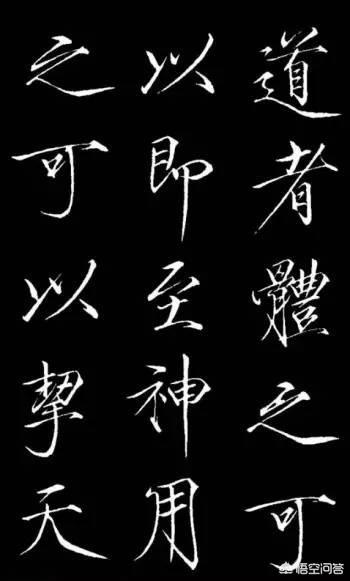 道者體之可
以即至神用
之可以挈天
悟空问答